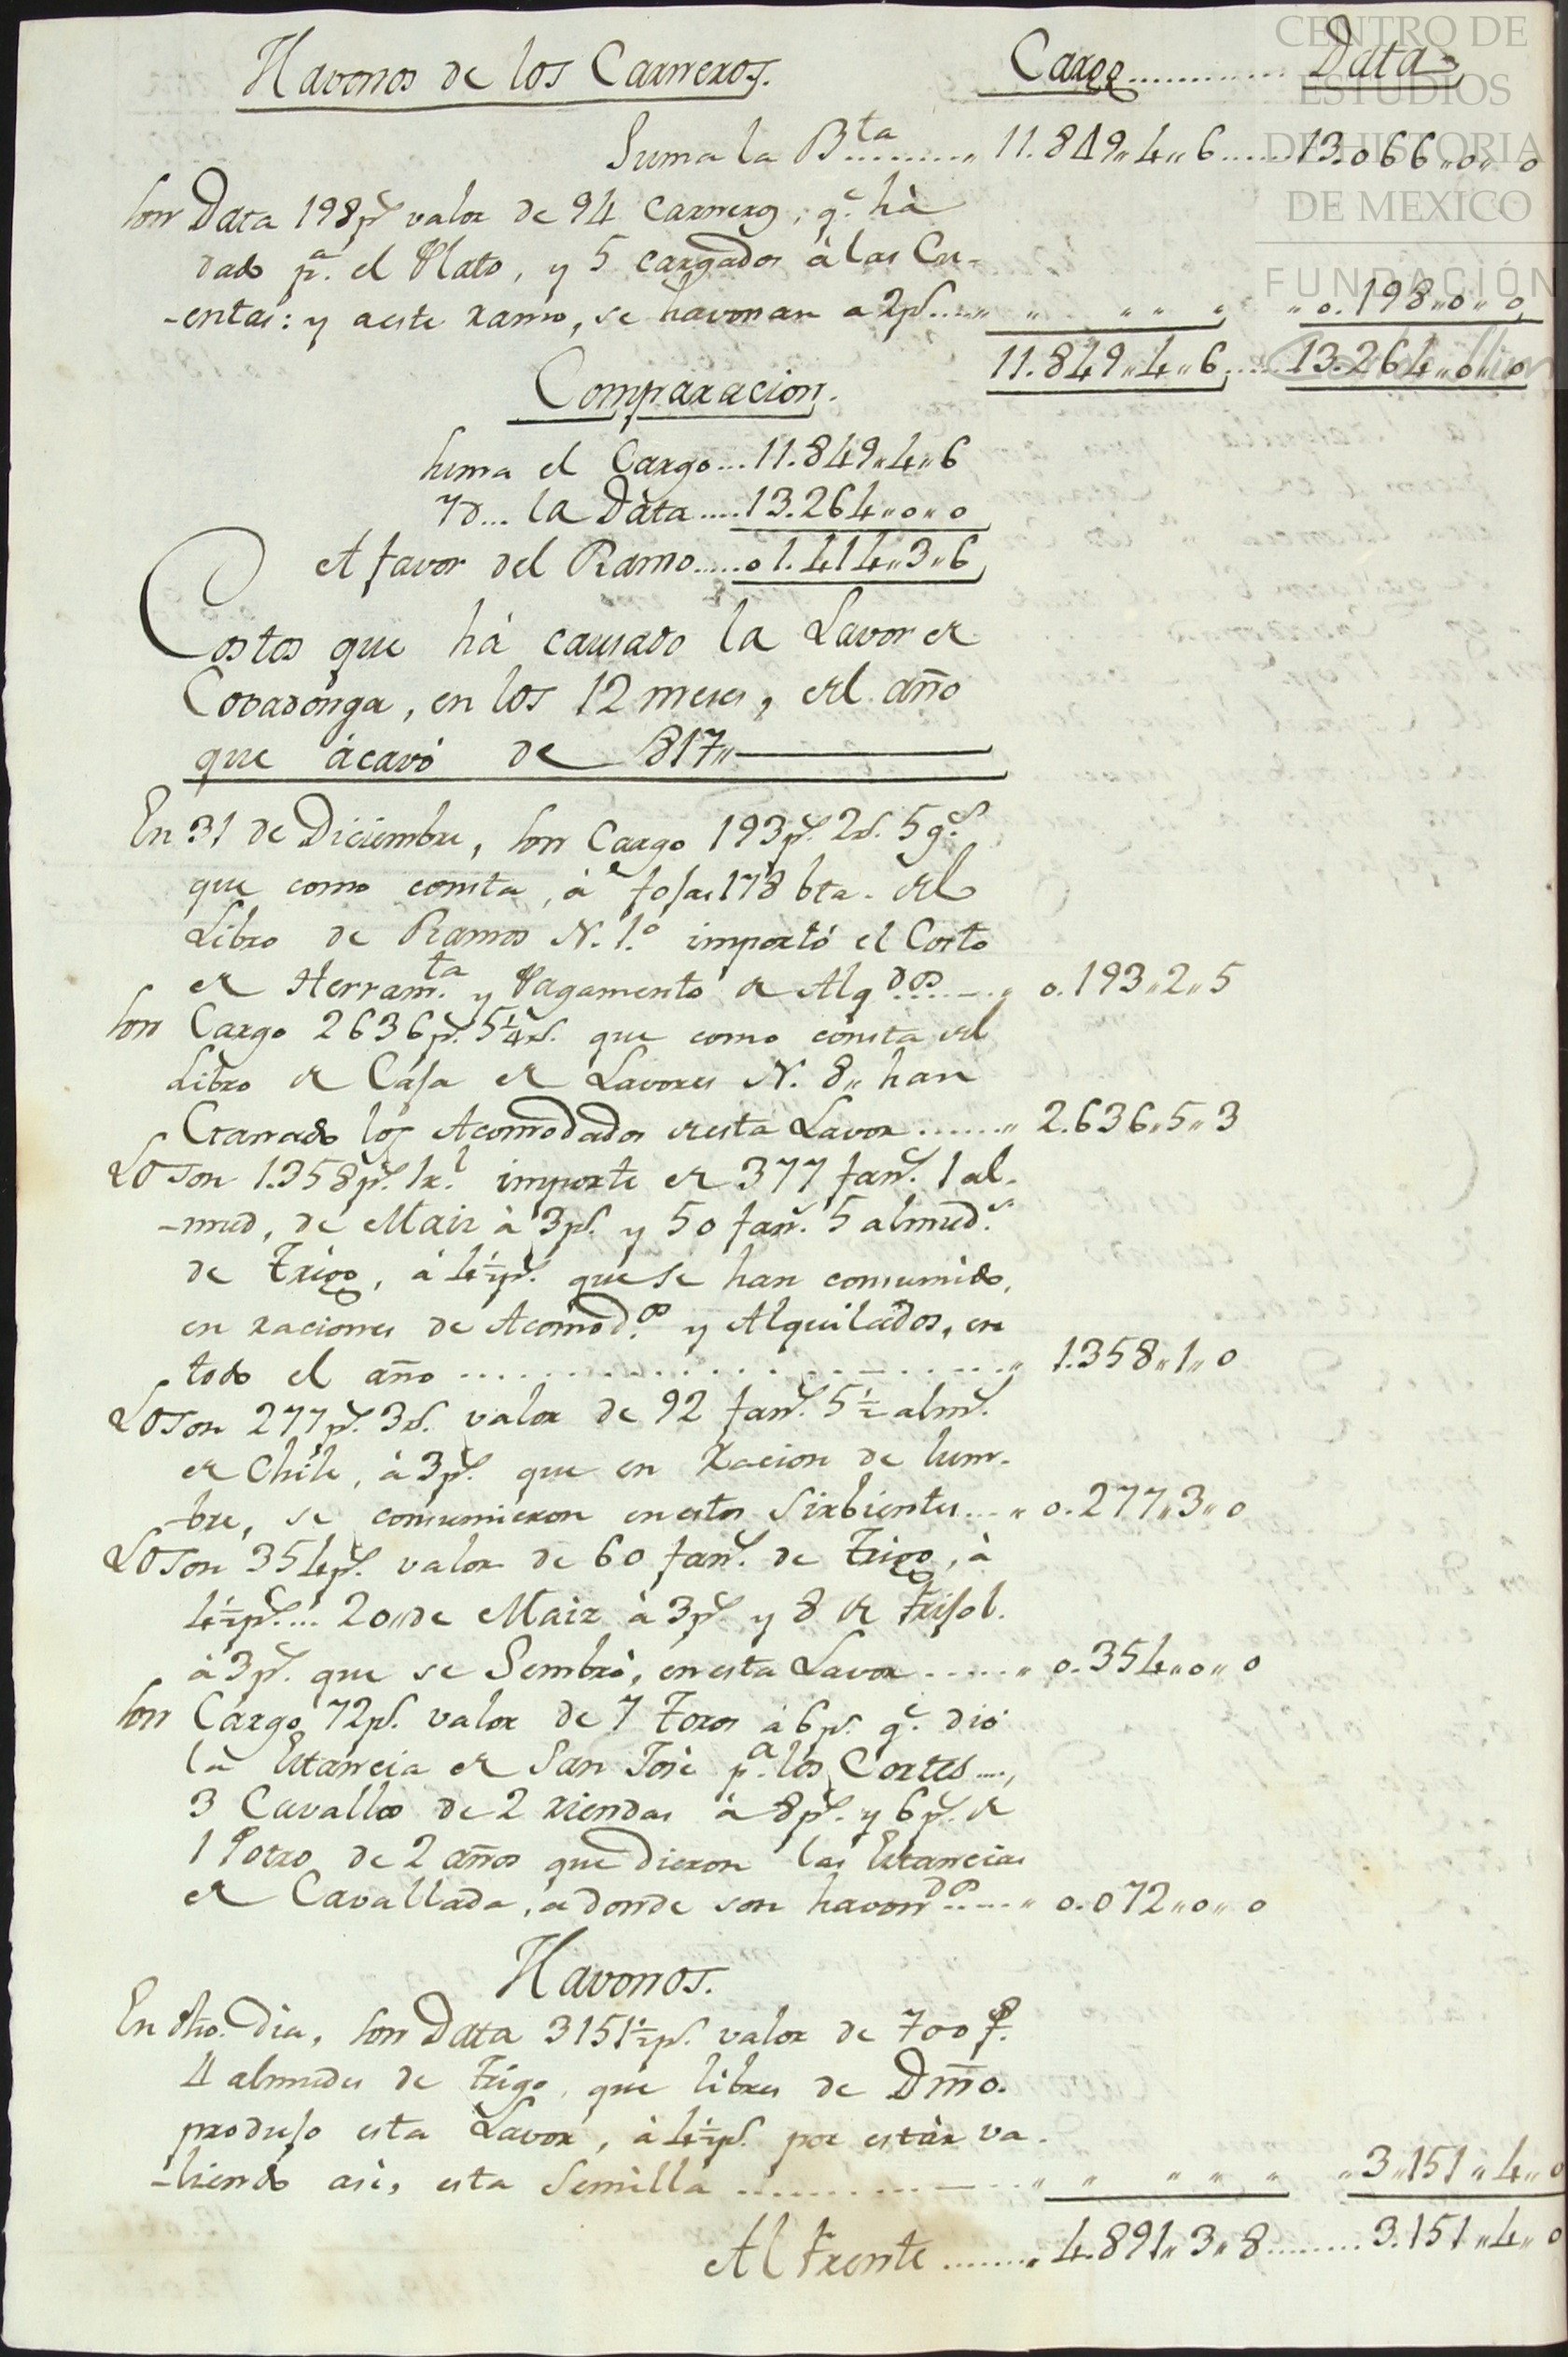 Havonos de los Carneros. Cargo............ Data
Suma la Bta......... 11.849,,4,,6...... 13.066,,0,,0
Son Data 198ps valor de 94 Carneros, qe. hà
dado pa. el Plato, y 5 cargados à las Cu-
-entas: y aeste ramo, se havonan a 2ps..... ,, ,, ,, ,, ,, ,, 0.198,,0,,0
11.849,,4,,6..... 13.264,,0,,0
Comparacion.
Suma el Cargo... 11.849,,4,,6
Yd... la Data..... 13.264,,0,,0
A favor del Ramo..... 01.414,,3,,6
Costos que hà causado la Lavor de
Covadonga, en los 12 meses, del año
que àcavó de 817,,
En 31 de Diciembre, Son Cargo 193ps. 2rs. 5gs.
que como consta, à fojas 178 bta. del
Libro de Ramos N. 1.o importó el Costo
de Herramta. y Pagamento de Alqdos....... 0.193,,2,,5
Son Cargo 2636ps. 5¼rs. que como consta del
Libro de Casa de Lavores N. 8,, han
Ganado los Acomodados desta Lavor ....... 2.636,,5,,3
Lo son 1.358ps. 1rl. importe de 377 fans. 1 al-
-mud, de Maiz à 3ps. y 50 fans. 5 almuds.
de Trigo, à 4½ps. que se han consumido,
en raciones de Acomodos. y Alquilados, en
todo el año .................... 1.358,,1,,0
Lo son 277ps. 3rs. valor de 92 fans. 5½ alms.
de Chile, à 3ps. que en Racion de lum-
-bre, se consumieron en estos Sirbientes.... 0.277,,3,,0
Lo son 354ps. valor de 60 fans. de Trigo, à
4½ps.... 20,,de Maiz à 3ps. y 8 de frisol.
à 3ps. que se Sembrò, en esta Lavor ...... 0.354,,0,,0
Son Cargo 72ps. valor de 7 Toros à 6ps. qe. dió
la Estancia de San José pa. los Cortes....,
3 Cavallos de 2 riendas à 8ps. y 6ps. de
1 Potro de 2 años que dieron las Estancias
de Cavallada, a donde son havondos...... 0.072,,0,,0
Havonos.
En dho. Dia, Son Data 3151½ps. valor de 700 f.
4 almudes de Trigo, que libres de Dmo.
produjo esta Lavor, à 4½ps. por estàr va-
-liendo asi, esta Semilla .............. ,, ,, ,, ,, ,, ,, 3,,151,,4,,0
Al Frente ........ 4.891,,3,,8......... 3.151,,4,,0
CENTRO DE
ESTUDIOS
DE HISTORIA
DE MEXICO
FUNDACIÓN